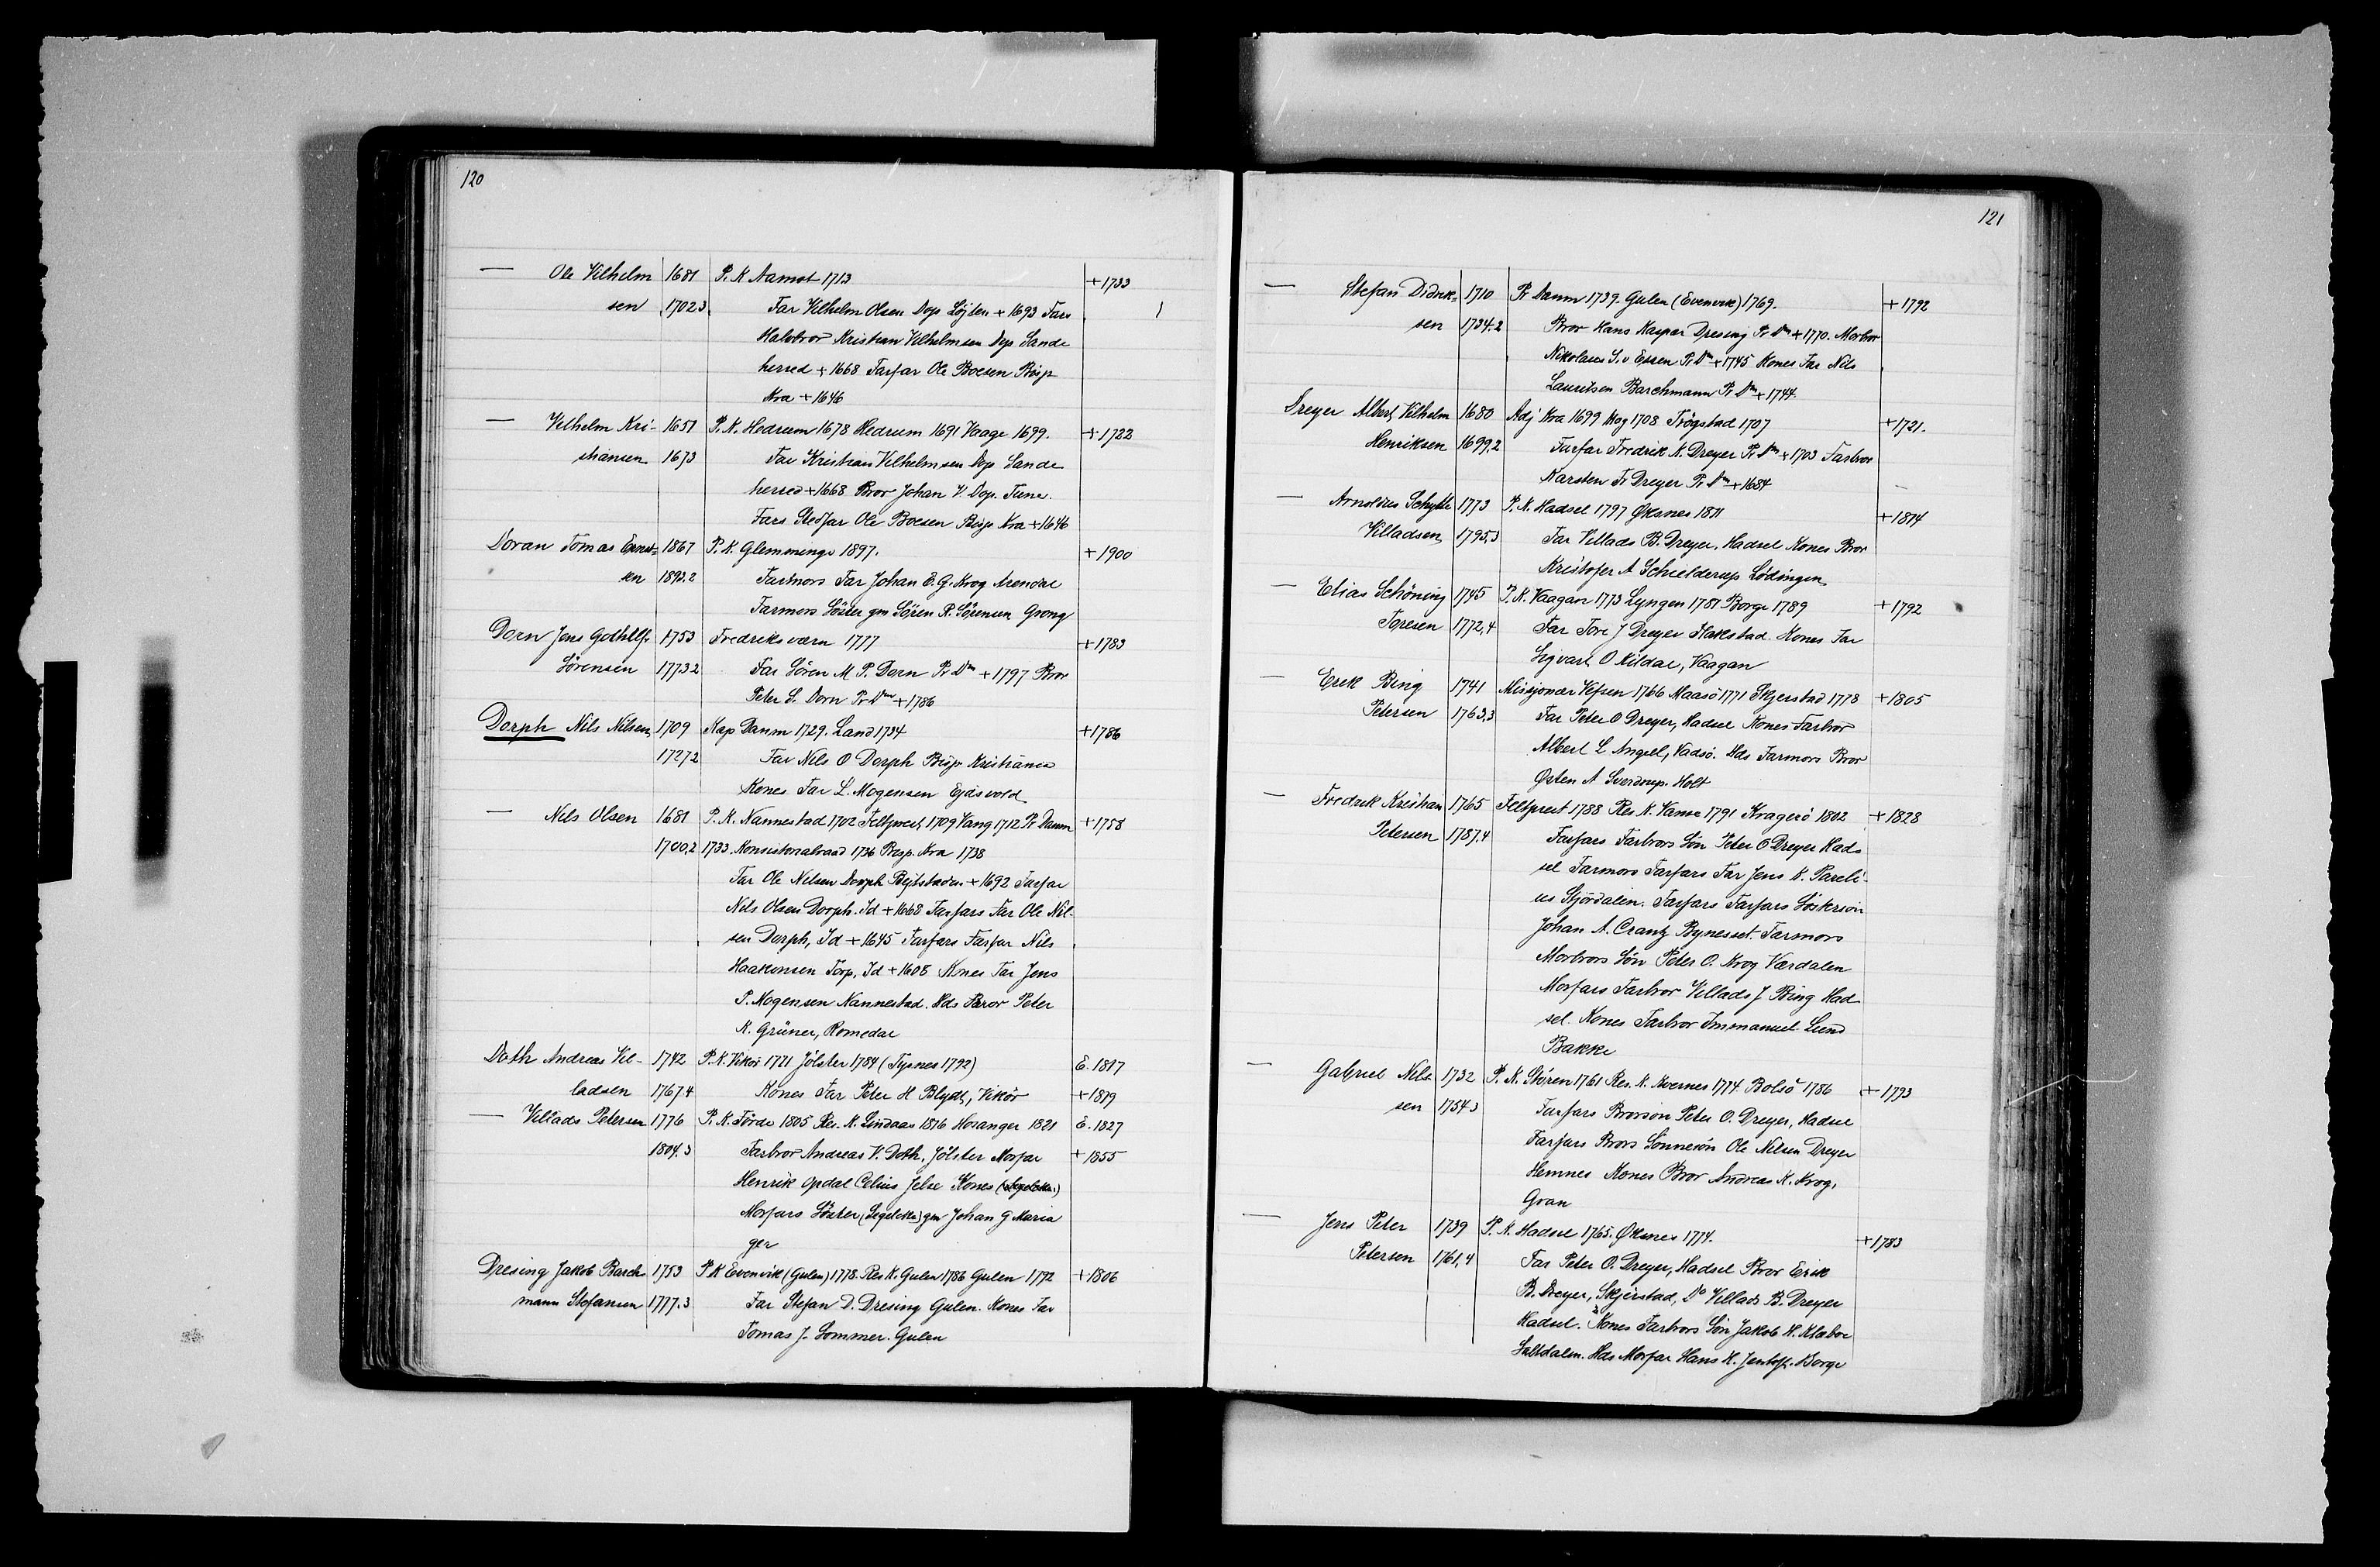 120
— Ole Vilhelm 1681 P. K. Aamot 1713 +1733
sen 1702.3 Far Vilhelm Olsen Dop Løjten +1693 Fars
Halvbror Kristian Vilhelmsen Dop Sande
herred +1668 Farfar Ole Boesen Bisp
Kra +1646
— Vilhelm Kri- 1651 P. K. Hedrum 1678 Hedrum 1691 Vaage 1699. +1722
stiansen 1673 Far Kristian Vilhelmsen Dop Sande
herred +1668 Bror Johan V. Dop. Tune.
Fars Stedfar Ole Boesen Bisp Kra +1646
Doran Tomas Ernst- 1867 P. K. Glemminge 1897. +1900
sen 1892.2 Farmors Far Johan E. G. Krog Arendal
Farmors Söster gm Sören R. Sörensen Grong
Dorn Jens Gothilf 1753 Fredriksværn 1777 +1783
Sörensen 1773.2 Far Sören M. P. Dorn Pr Dm +1797 Bror
Peter S. Dorn Pr Dm +1786
Dorph Nils Nilsen 1709 Kap Danm 1729. Land 1734 +1786
1727.2 Far Nils O Dorph Bisp Kristiania
Kones Far L. Mogensen Ejdsvold
— Nils Olsen 1681 P. K. Nannestad 1702 Feltprest 1709 Vang 1712 Pr Danm +1758
1700.2 1733. Konsistorialraad 1736 Bisp. Kra 1738
Far Ole Nilsen Dorph Bejtstaden +1692 Farfar
Nils Olsen Dorph. Id +1668 Farfars Far Ole Nil-
sen Dorph, Id +1645 Farfars Farfar Nils
Haakonsen Torp, Id +1608 Kones Far Jens
P. Mogensen Nannestad. Hds Bror Peter
K. Grüner, Romedal
Doth Andreas Vil- 1742 P. K. Vikör 1771 Jölster 1784 (Tysnes 1792) E. 1817
ladsen 1767.4 Kones Far Peter H Blydt, Vikör +1819
— Villads Petersen 1776 P. K. Förde 1805 Res. K. Lindaas 1816 Hosanger 1821 E. 1827
1804.3 Farbror Andreas V. Doth, Jölster Morfar +1855
Henrik Opdal Celius Jelse Kones
Morfars Söster (Segelcke) gm Johan G Maria
ger
Dresing Jakob Barch 1753 P. K Evenvik (Gulen) 1778. Res K. Gulen 1786 Gulen 1792 +1806
mann Stefansen 1777.3 Far Stefan D. Dresing Gulen. Kones Far
Tomas J. Sommer. Gulen
121
— Stefan Didrik- 1710 Pr Danm 1739. Gulen (Evenvik) 1769. +1792
sen 1734.2 Bror Hans Kaspar Dresing Pr Dm +1770. Morbror
Nikolaus S. v Essen Pr Dm +1745 Kones Far Nils
Lauritsen Barchmann Pr Dm +1744.
Dreyer Albert Vilhelm 1680 Adj Kra 1699 Mag 1708 Trögstad 1707 +1721.
Henriksen 1699.2 Farfar Fredrik K. Dreyer Pr Dm +1703 Farbror
Karsten Fr Dreyer Pr Dm +1684
— Arnoldus Schytte 1773 P. K. Hadsel 1797 Øksnes 1811 +1814
Villadsen 1795.3 Far Villads B. Dreyer, Hadsel Kones Bror
Kristofer A Schielderup Lödingen
— Elias Schöning 1745 P. K. Vaagan 1773 Lyngen 1781 Borge 1789 +1792
Toresen 1772,4 Far Tore J Dreyer Hakstad. Kones Far
Sigvart O Kildal, Vaagan
— Erik Bing 1741 Missjonær Vefsen 1766 Maasö 1771 Skjerstad 1778 +1805
Petersen 1763,3 Far Peter O Dreyer, Hadsel Kones Farbror
Albert L Angell, Vadsö. Hds Farmors Bror
Østen A Sverdrup. Holt
— Fredrik Kristian 1765 Feltprest 1788 Res. K. Vanse 1791 Kragerö 1802 +1828
Petersen 1787.4 Farfars Farbrors Sön Peter O Dreyer Had-
sel Farmors Farfars Far Jens K. Pareli-
us Stjördalen. Farfars Farfars Söstersön
Johan A. Crantz Bynesset. Farmors
Morbrors Sön Peter O. Krog Værdalen
Morfars Farbror Villads J. Bing Had
sel. Kones Farbror Immanuel Lund
Bakke
— Gabriel Nils- 1732 P. K. Stören 1761 Res. K. Kvernes 1774 Bolsö 1786 +1793
sen 1754.3 Farfars Brorsön Peter O. Dreyer, Hadsel
Farfars Brors Sönnesön Ole Nilsen Dreyer
Hemnes Kones Bror Andreas K. Krog,
Gran
— Jens Peter 1739 P. K. Hadsel 1765. Øksnes 1774. +1783
Petersen 1761,4 Far Peter O. Dreyer, Hadsel Bror Erik
B. Dreyer, Skjerstad, Do Villads B. Dreyer
Hadsel. Kones Farbrors Sön Jakob H. Klæboe
Saltdalen. Hds Morfar Hans H. Jentoft. Borge